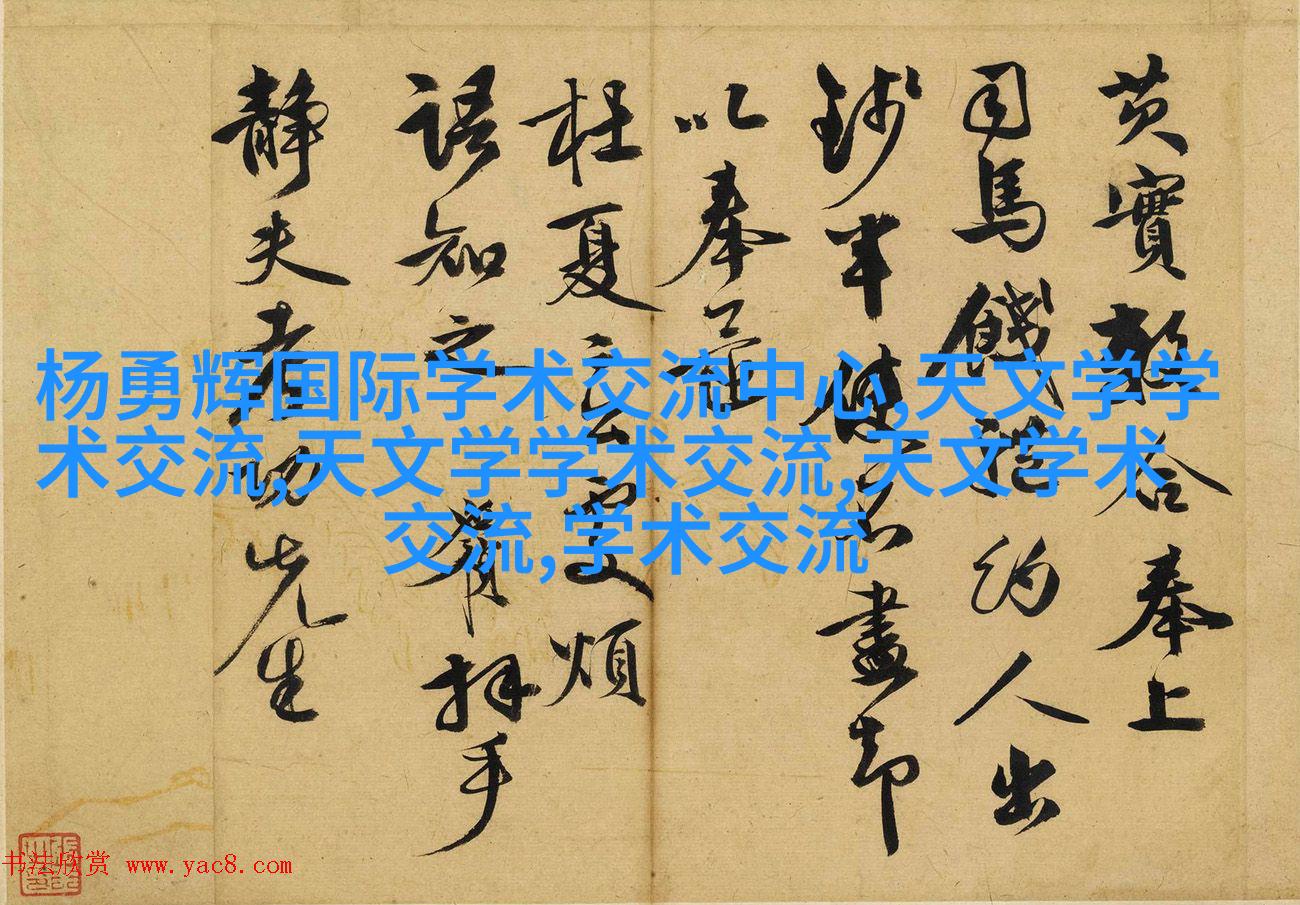 芡實數合奉上
司馬餞禮約人出
錢半盡却
以奉
杜夏云更煩
語知之拜手
靜夫先生
杨勇辉国际学术交流中心,天文学学
术交流,天文学学术交流,天文学术
交流,学术交流
书法欣赏 www.yac8.com